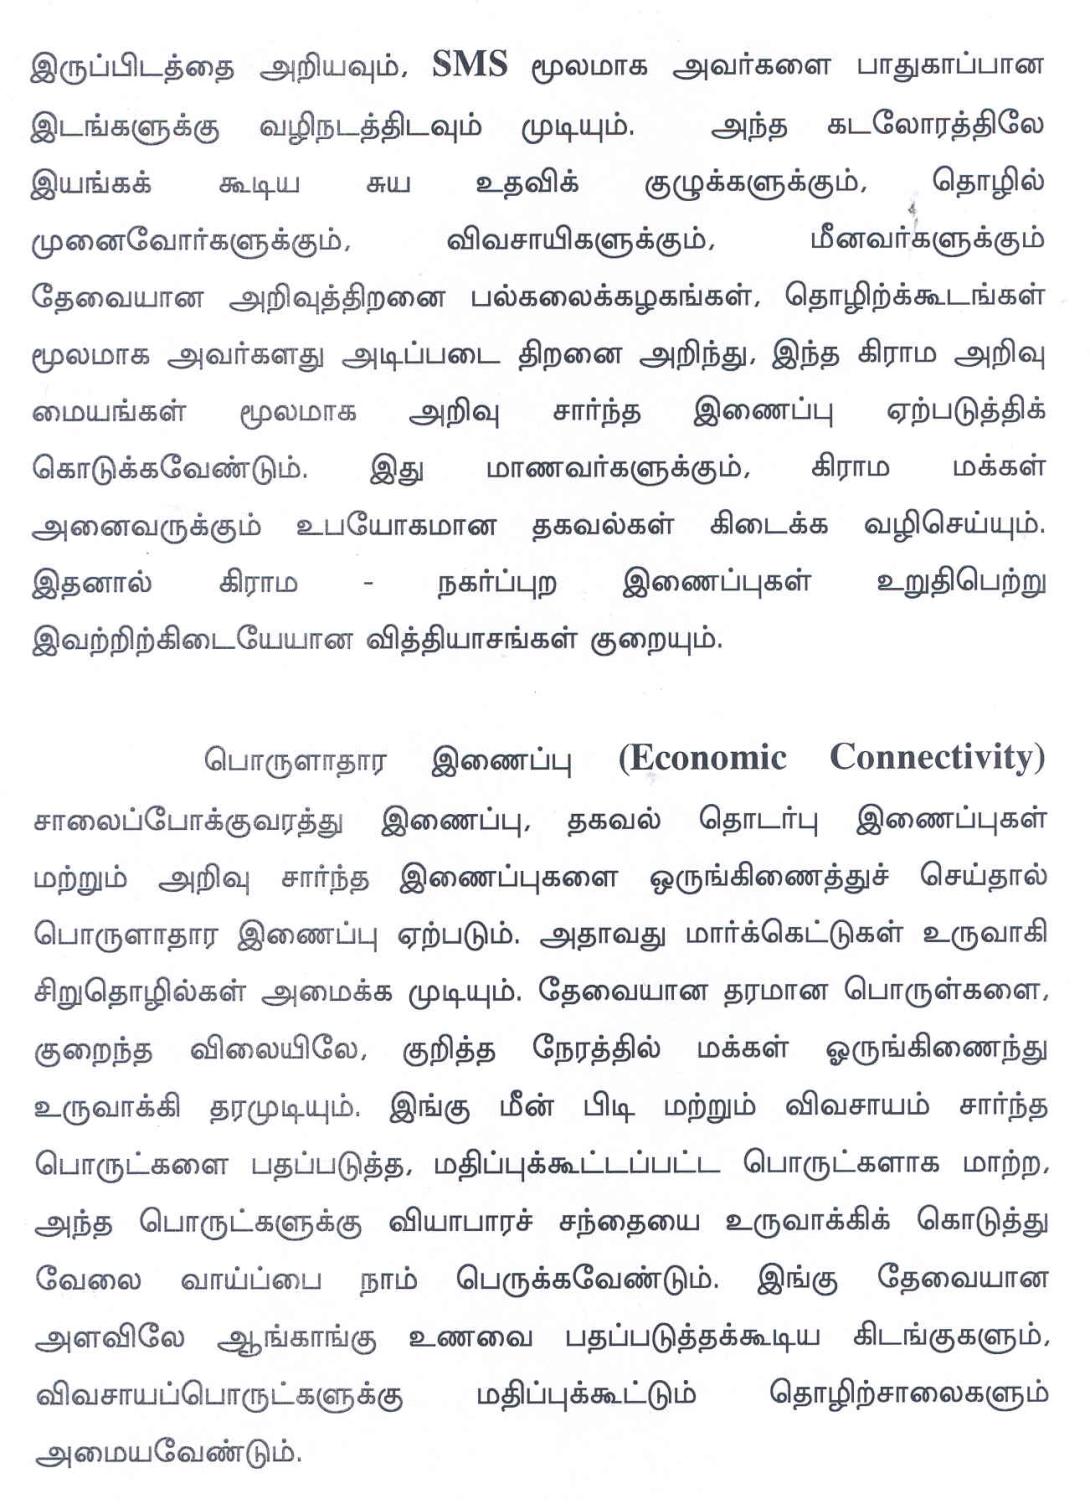 இருப்பிடத்தை அறியவும், SMS மூலமாக அவர்களை பாதுகாப்பான
இடங்களுக்கு வழிநடத்திடவும் முடியும். அந்த கடலோரத்திலே
இயங்கக் கூடிய சுய உதவிக் குழுக்களுக்கும், தொழில்
முனைவோர்களுக்கும், விவசாயிகளுக்கும், மீனவர்களுக்கும்
தேவையான அறிவுத்திறனை பல்கலைக்கழகங்கள், தொழிற்க்கூடங்கள்
மூலமாக அவர்களது அடிப்படை திறனை அறிந்து, இந்த கிராம அறிவு
மையங்கள் மூலமாக அறிவு சார்ந்த இணைப்பு ஏற்படுத்திக்
கொடுக்கவேண்டும். இது மாணவர்களுக்கும், கிராம மக்கள்
அனைவருக்கும் உபயோகமான தகவல்கள் கிடைக்க வழிசெய்யும்.
இதனால் கிராம - நகர்ப்புற இணைப்புகள் உறுதிபெற்று
இவற்றிற்கிடையேயான வித்தியாசங்கள் குறையும்.
பொருளாதார இணைப்பு (Economic Connectivity)
சாலைப்போக்குவரத்து இணைப்பு, தகவல் தொடர்பு இணைப்புகள்
மற்றும் அறிவு சார்ந்த இணைப்புகளை ஒருங்கிணைத்துச் செய்தால்
பொருளாதார இணைப்பு ஏற்படும். அதாவது மார்க்கெட்டுகள் உருவாகி
சிறுதொழில்கள் அமைக்க முடியும். தேவையான தரமான பொருள்களை,
குறைந்த விலையிலே, குறித்த நேரத்தில் மக்கள் ஓருங்கிணைந்து
உருவாக்கி தரமுடியும். இங்கு மீன் பிடி மற்றும் விவசாயம் சார்ந்த
பொருட்களை பதப்படுத்த, மதிப்புக்கூட்டப்பட்ட பொருட்களாக மாற்ற,
அந்த பொருட்களுக்கு வியாபாரச் சந்தையை உருவாக்கிக் கொடுத்து
வேலை வாய்ப்பை நாம் பெருக்கவேண்டும். இங்கு தேவையான
அளவிலே ஆங்காங்கு உணவை பதப்படுத்தக்கூடிய கிடங்குகளும்,
விவசாயப்பொருட்களுக்கு மதிப்புக்கூட்டும் தொழிற்சாலைகளும்
அமையவேண்டும்.